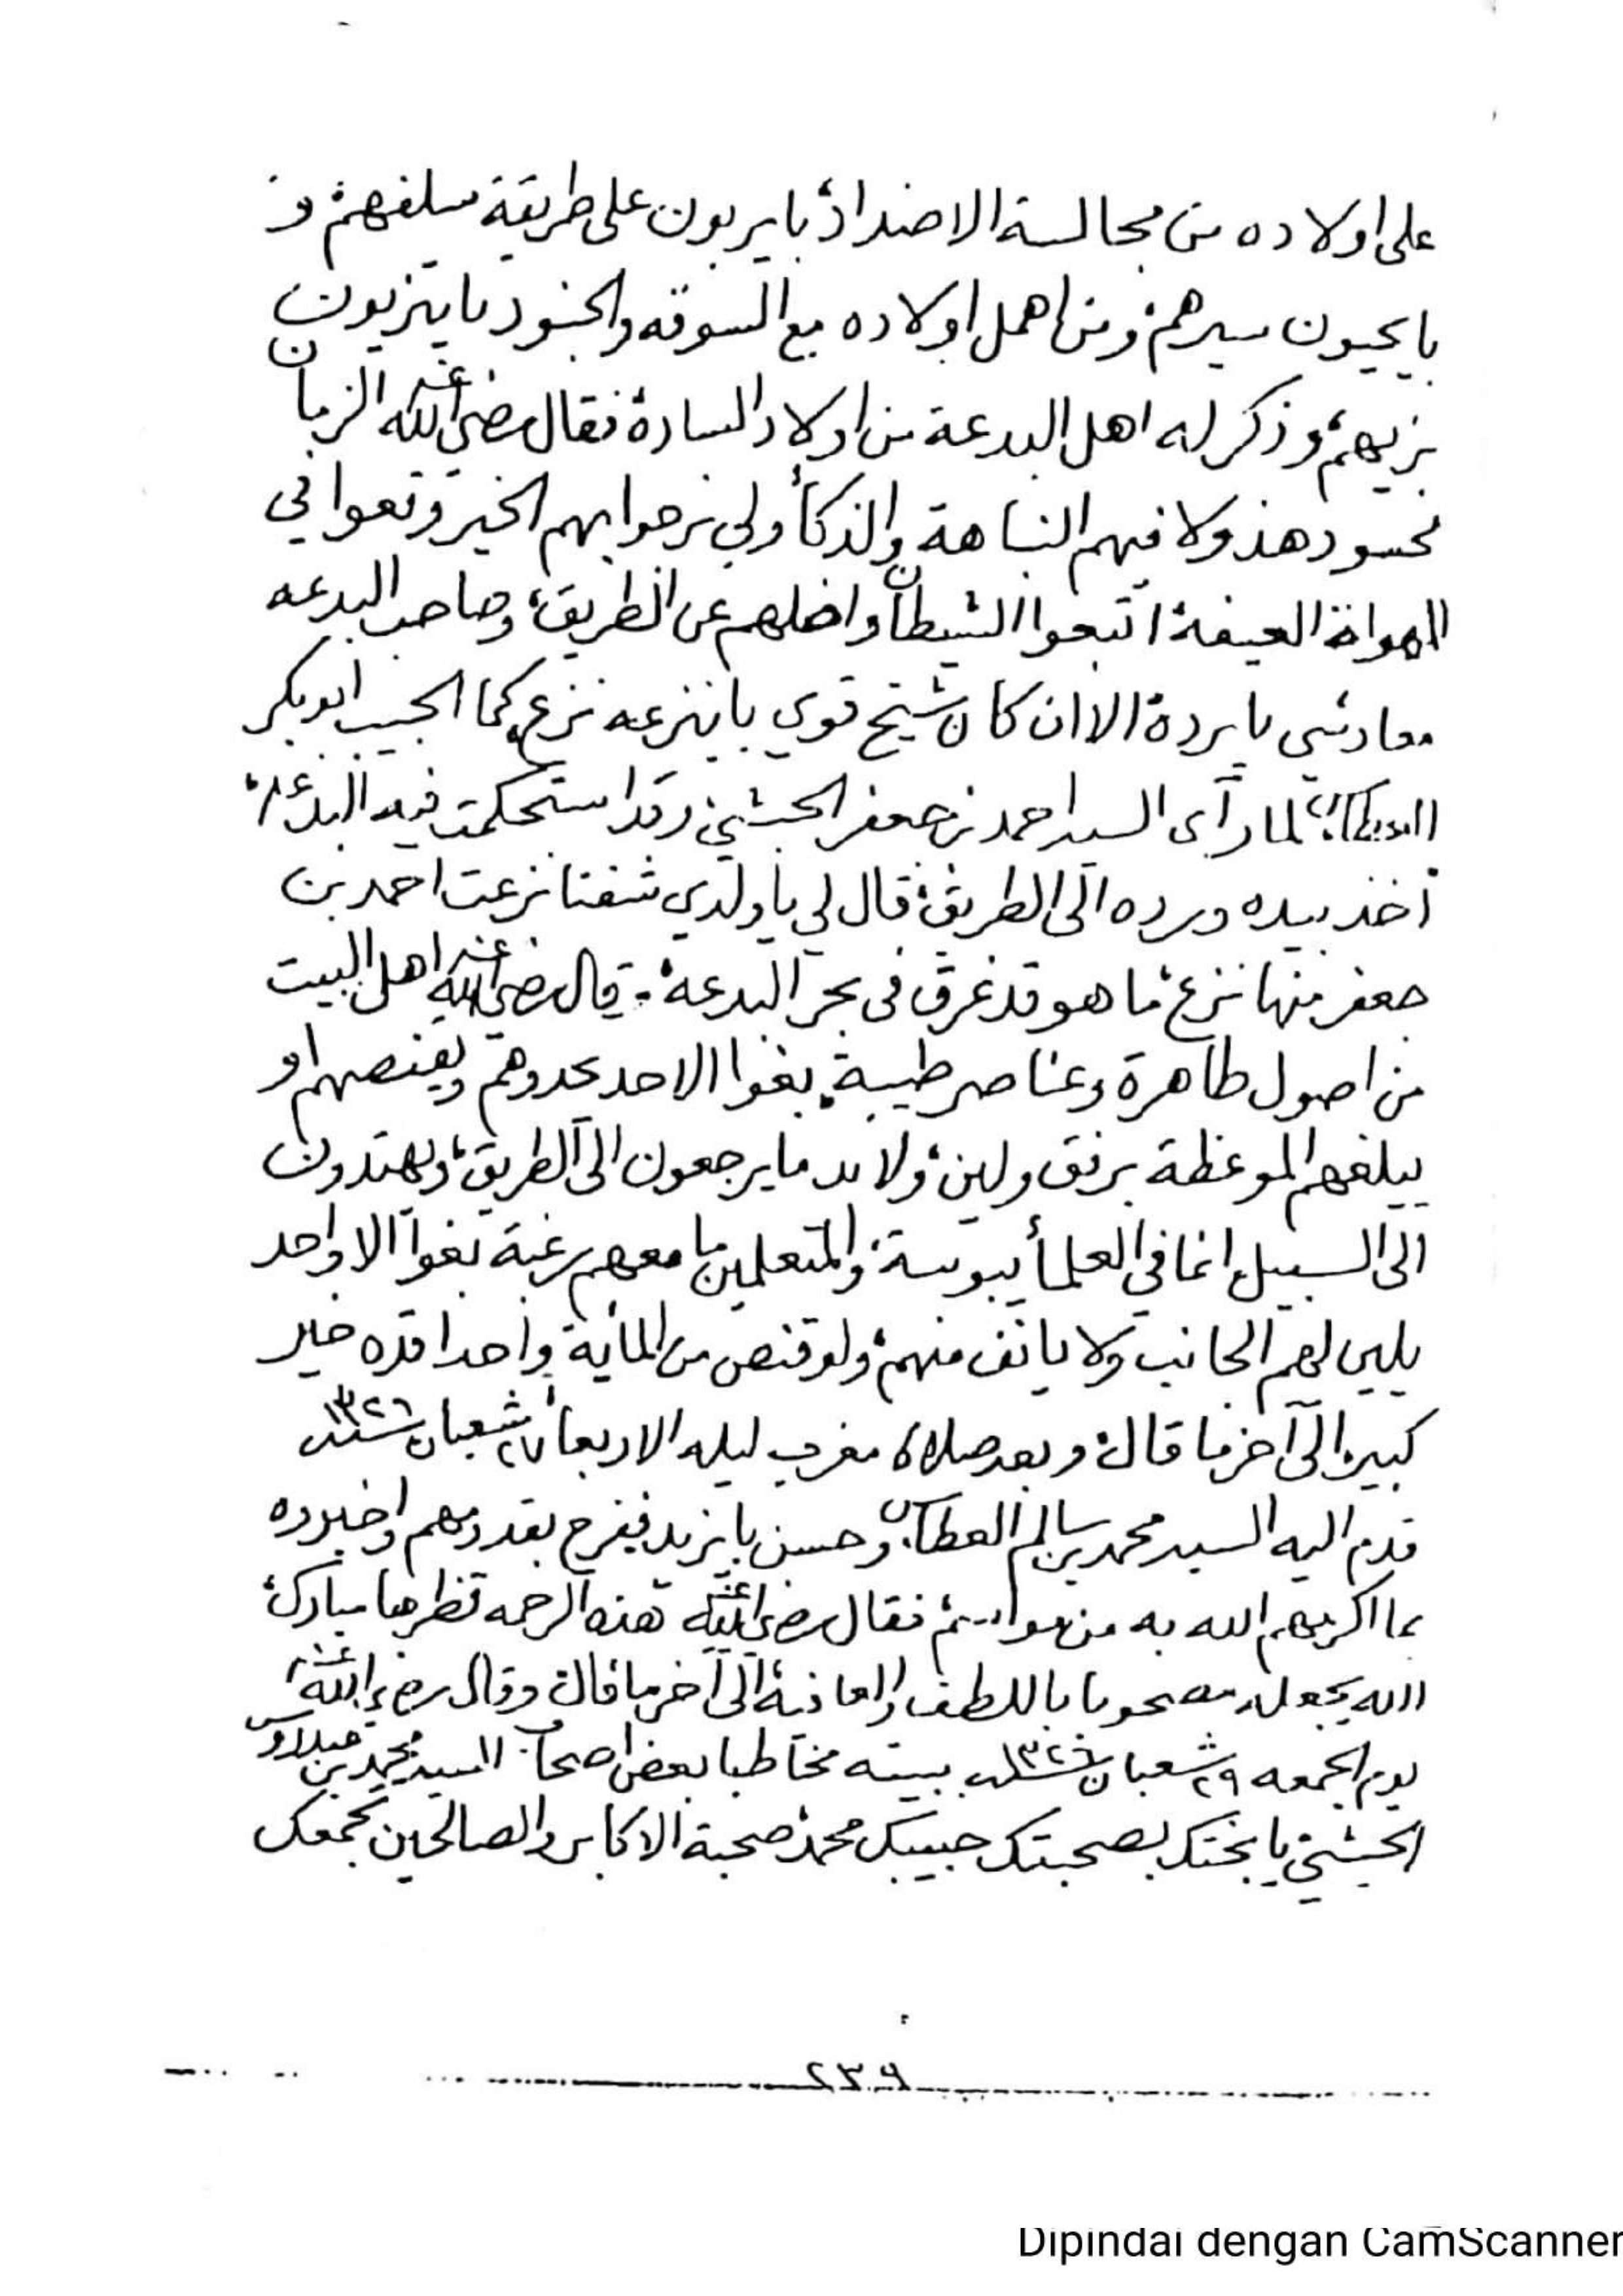 على اولاده من مجالسة الاضداد، بايربون على طريقة سلفهم، و
بايحيون سيرهم، ومن اهمل اولاده مع السوقه والجنود بايتزيون
بزيهم، وذكر له اهل البدعة من اولاد السادة، فقال رضي الله عنه الزمان
محسود هذولا فيهم النباهة والذكأ ولي نرجوا بهم الخير وقعوا في
العيفة، اتبعوا الشيطان واضلهم عن الطريق، وصاحب البدعه
معاد شي بايرده الا ان كان شيخ قوي باينزعه نزع كما الحبيب ابوبكر
لما رآى السيد احمد بن جعفر الحبشي، وقد استحكمت فيه البدعة،
أخذ بيده ورده الى الطريق، قال لي يا ولدي شفنا نزعت احمد بن
جعفر منها نزع، ما هو قد غرق فى بحر البدعة، قال رضي الله عنه اهل البيت
من اصول طاهرة وعناصر طيبة، بغوا الا حد يحدوهم ويقنصهم او
يبلغهم الموعظة برفق ولين، ولا بد ما يرجعون الى الطريق، ويهتدون
الى السبيل، انما في العلمأ يبوسة، والمتعلمين ما معهم رغبة بغوا الا واحد
يلين لهم الجانب ولا يانف منهم، ولو قنص من المائية واحدا قده خير
كبير، الى آخر ما قال، وبعد صلاة مغرب ليلة الاربعأ ٢٧ شعبان سنة ١٣٢٦
قدم اليه السيد محمد بن سالم العطاس، وحسن بايزيد ففرح بقدومهم واخبروه
بما اكرمهم الله به من فقال رضي الله عنه هذه الرحمه نظرها مبارك،
الله يجعله مصحوبا باللطف والعافية، الى آخر ما قال، وقال رضي الله عنه،
يوم الجمعه ٢٩ شعبان سنة ١٣٢٦ ببيته مخاطبا بعض اصحاب السيد محمد بن عيدروس
الحبشي يا بختك بصحبتك حبيبك محمد، صحبة الاكابر والصالحين تجمعك
٢٣٩
Dipindai dengan CamScanner